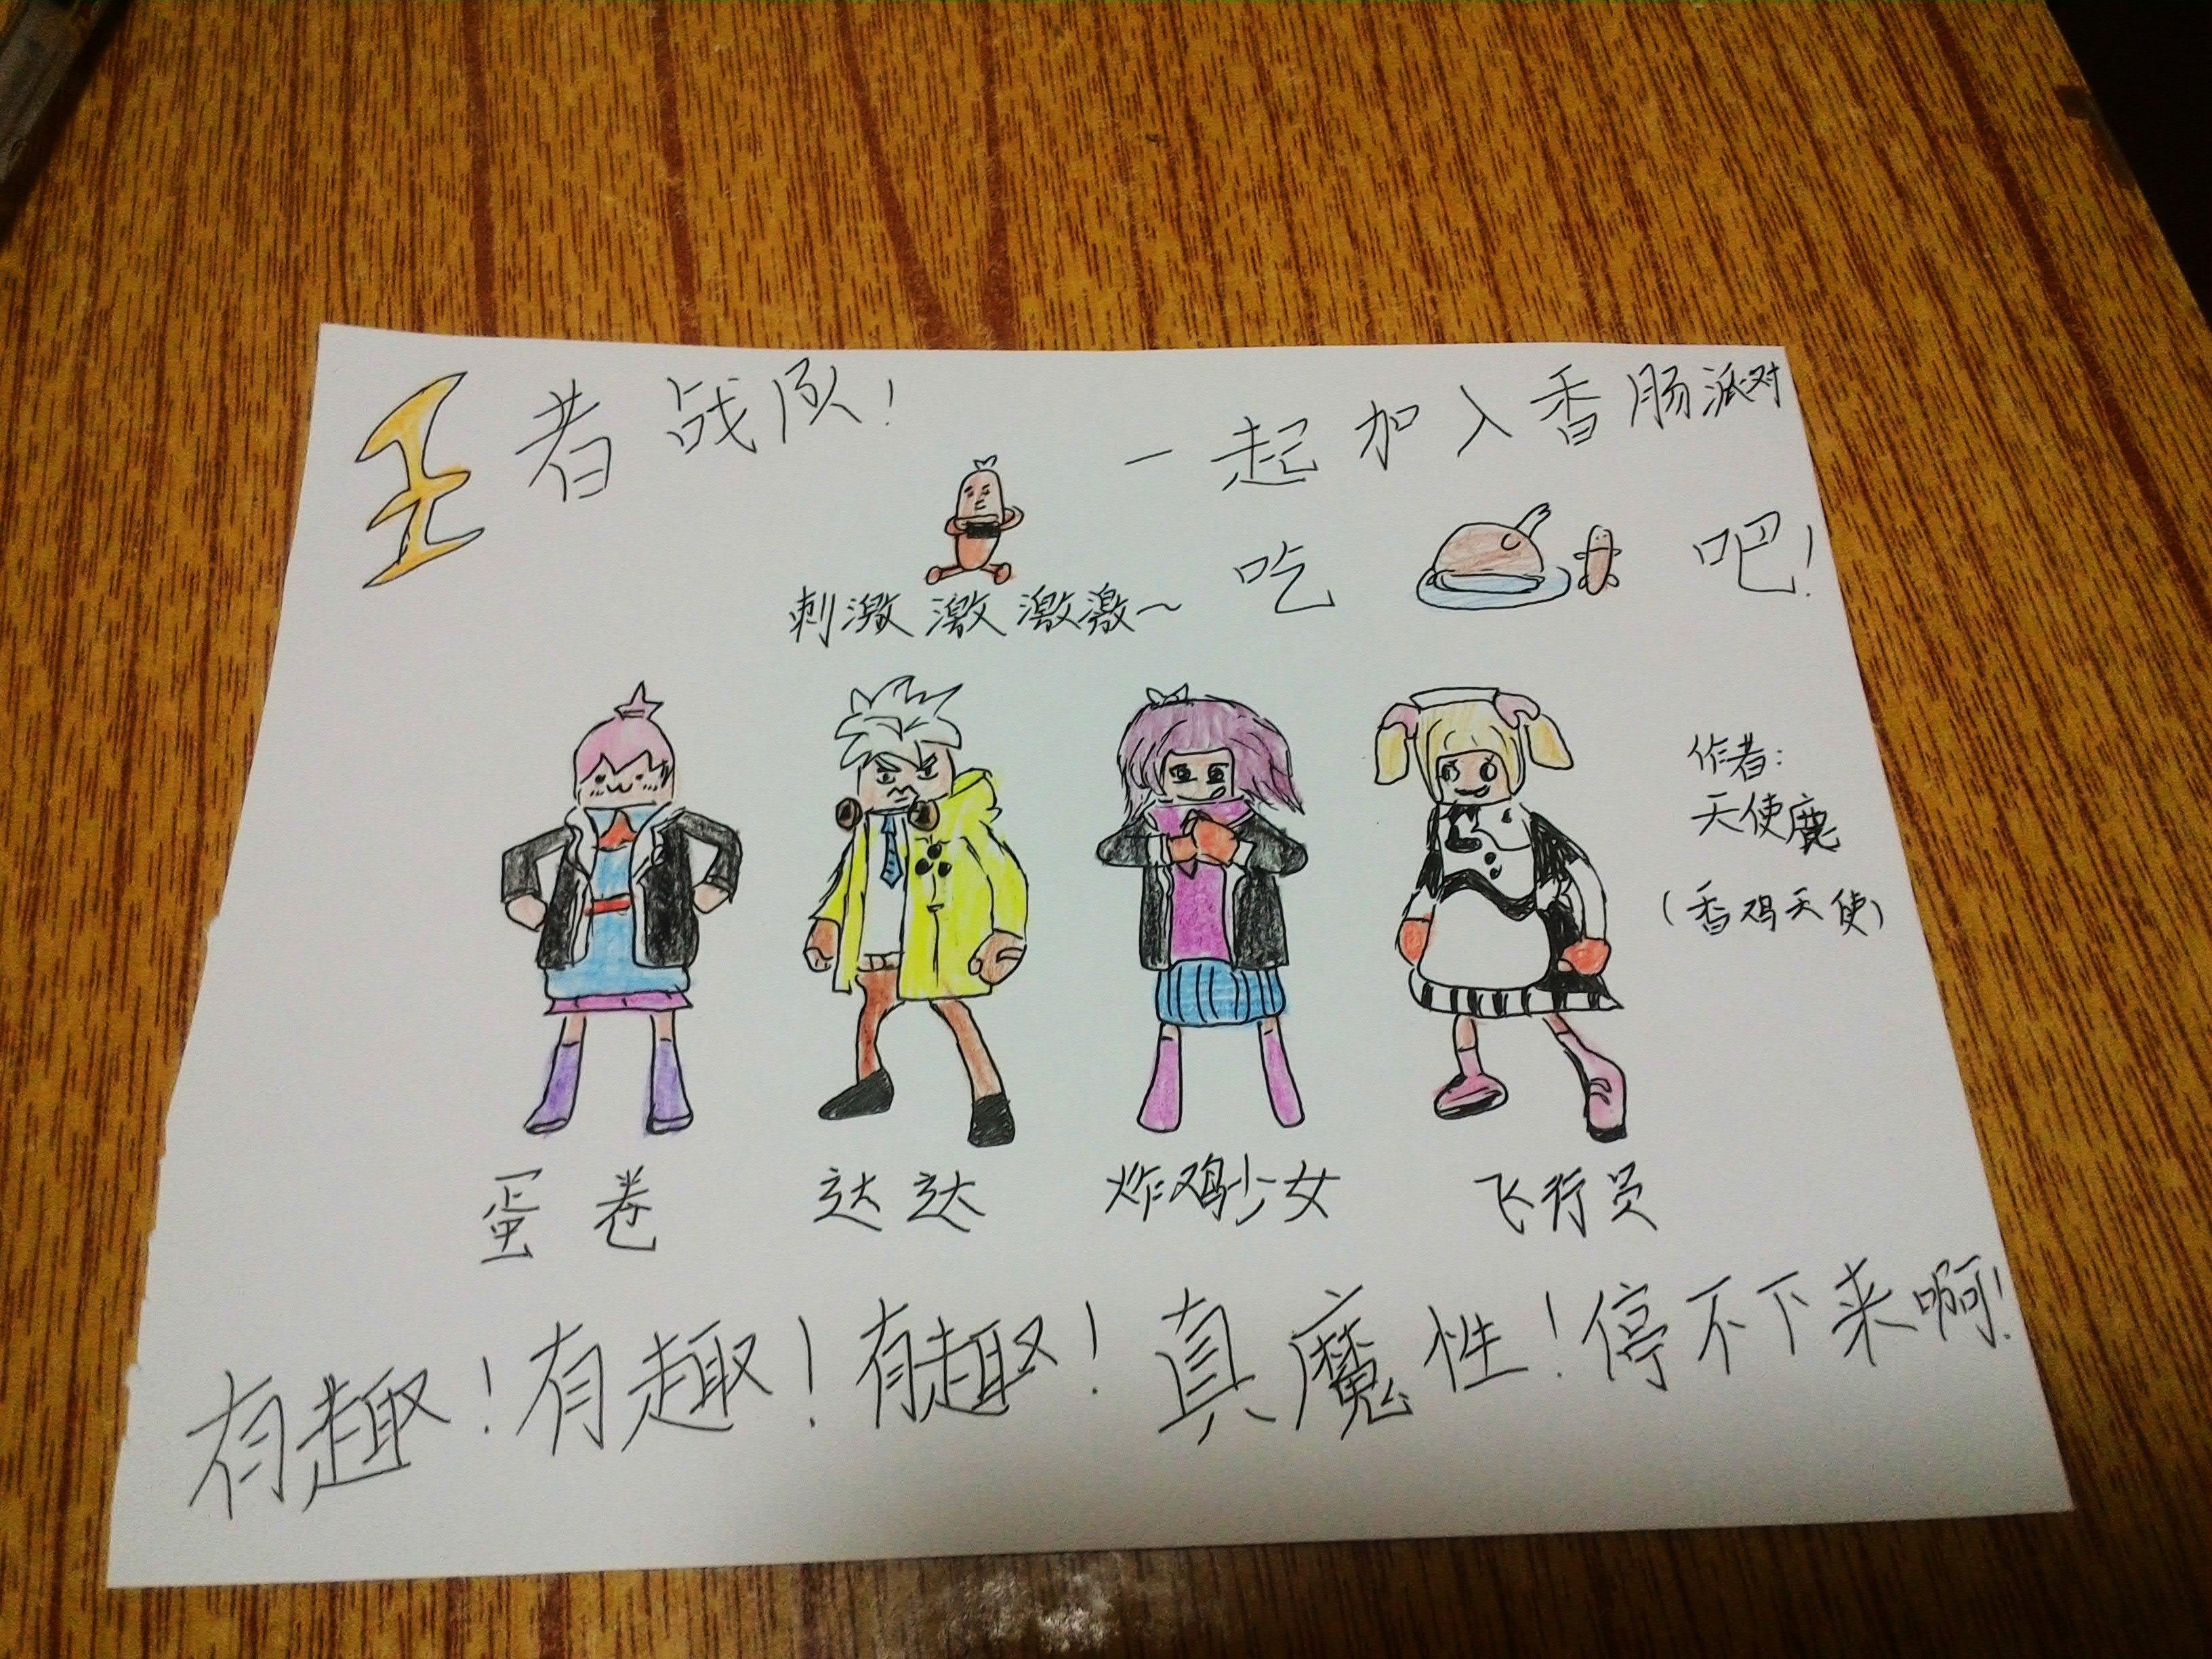 王者战队！
一起加入香肠派对
吃
吧！
刺激激激激～
作者：
天使鹿
（香鸡天使）
蛋卷
达达
炸鸡少女
飞行员
有趣！有趣！有趣！真魔性！停不下来啊！